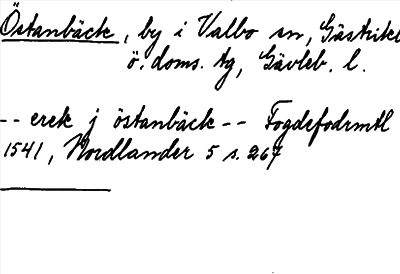 Östanbäck, by i Valbo sn, Gästrikl
ö. doms. tg, Gävleb. l.
-- erek j östanbäck -- Fogdefodrmtl
1541, Nordlander 5 s. 267